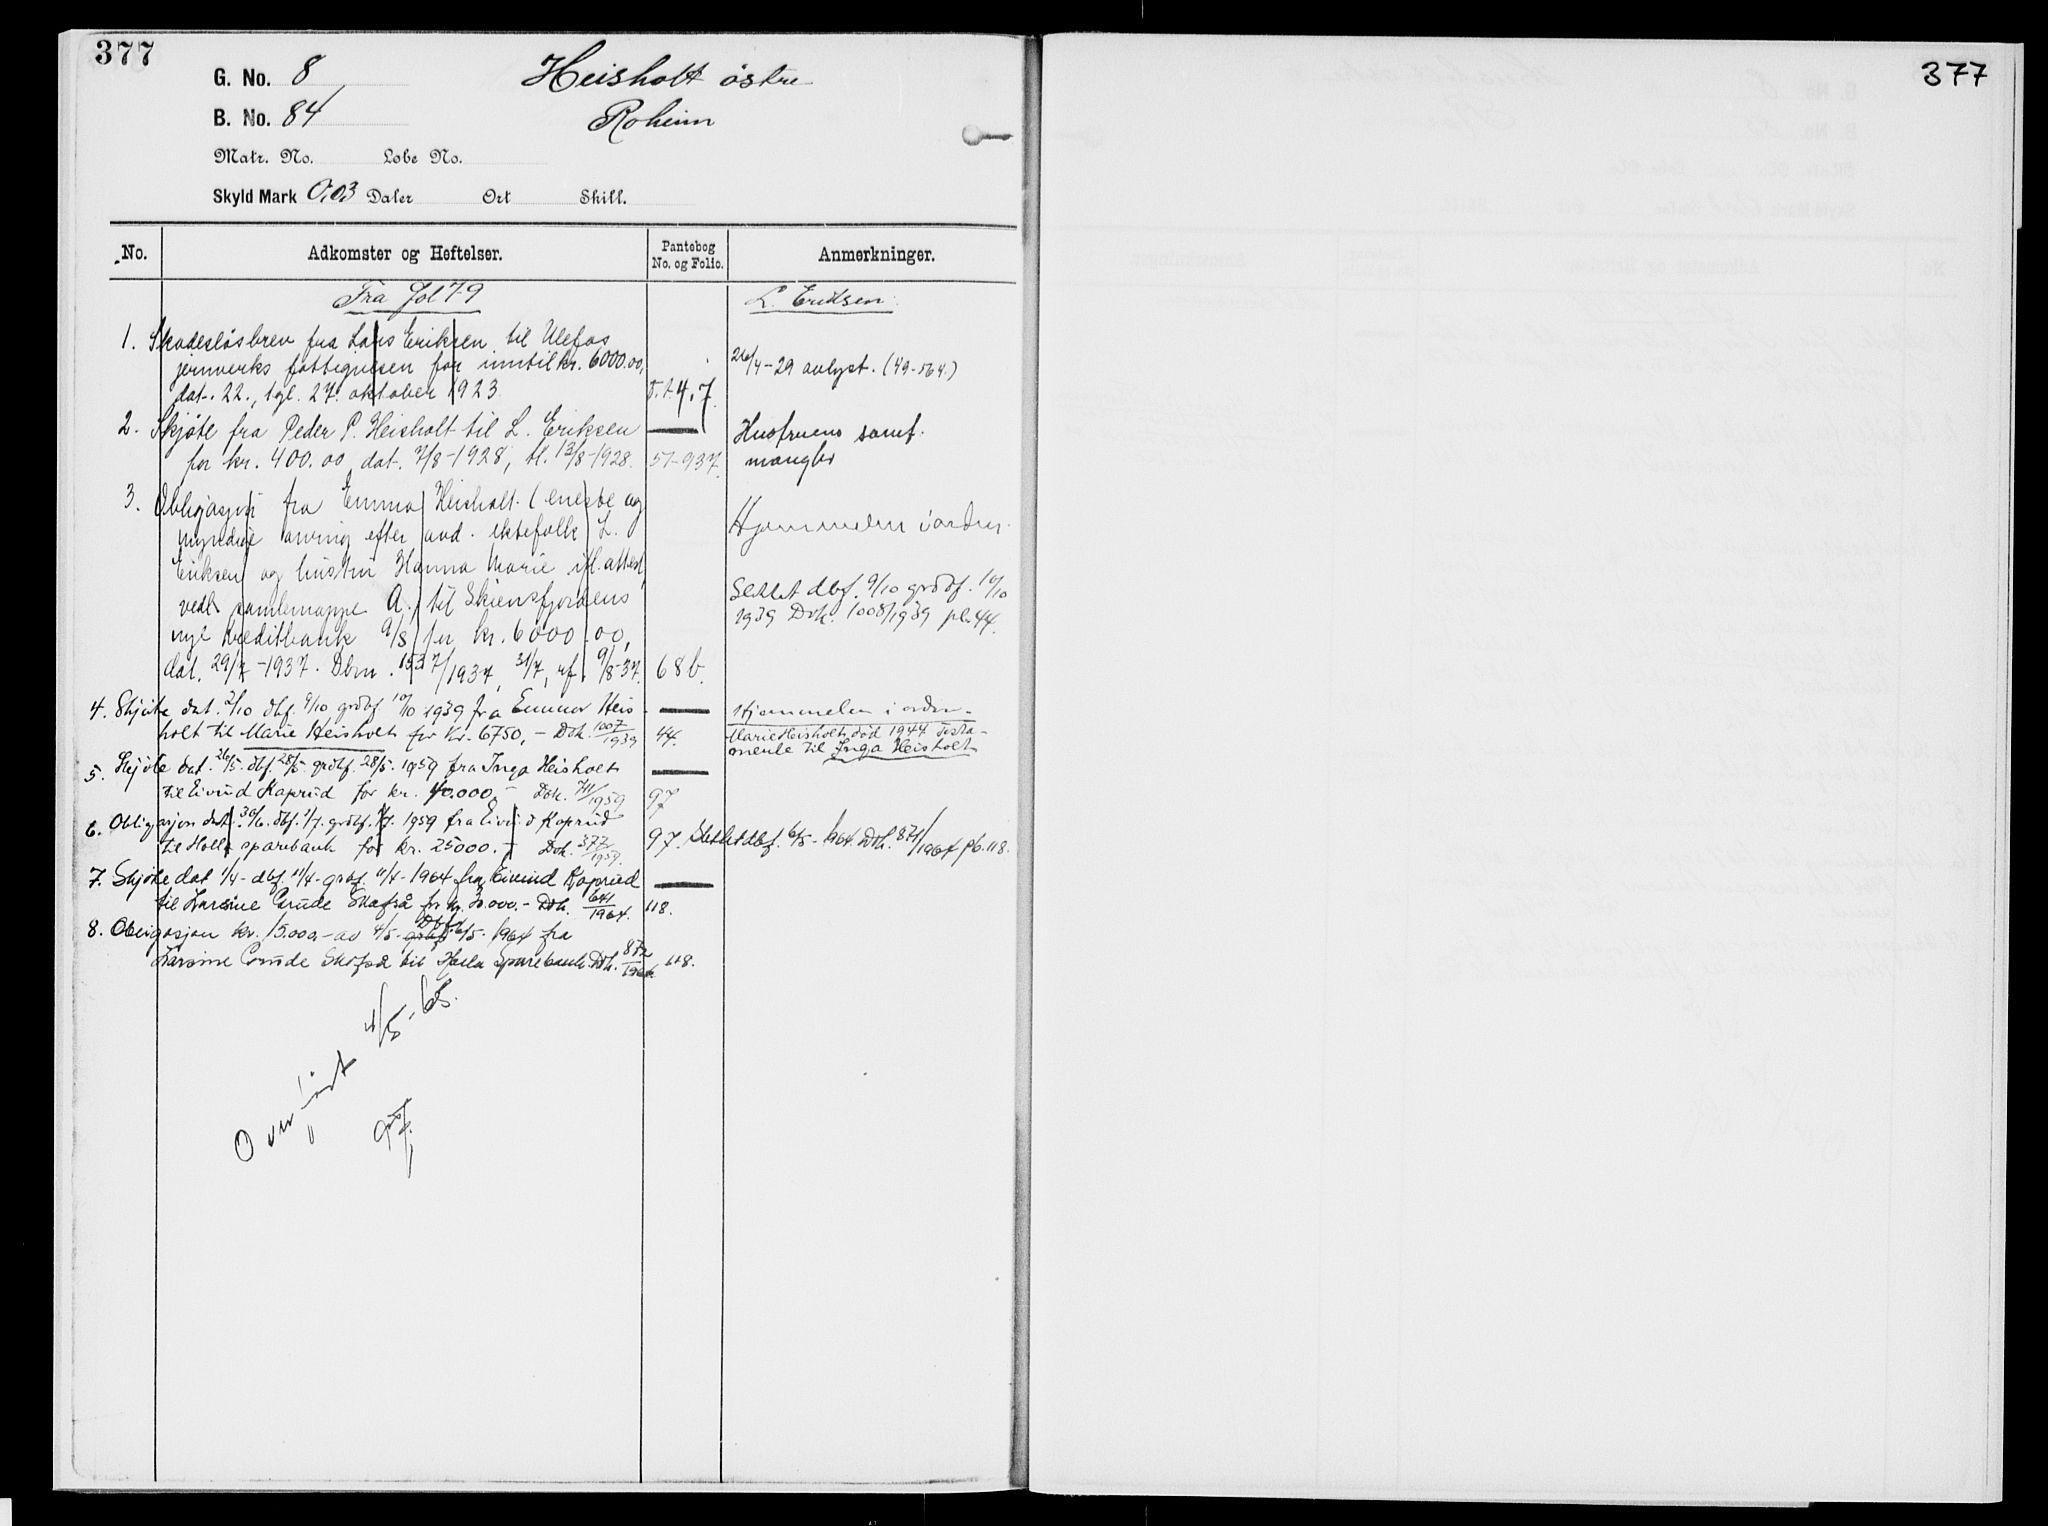 377
G. No. 8 Heisholt östre
B. No. 84 Roheim
Matr. No. Løbe No.
Skyld Mark 0,03 Daler Ort Skill.
No. Adkomster og Heftelser. Pantebog No. og Folio. Anmerkninger.
Fra fol 79 L. Eriksen
1. Skadeslösbrev fra Lars Eriksen til Ulefos
jernverks fattigvesen for inntil kr. 6000.00,
dat. 22., tgl. 27. oktober 1923 4.7. 26/4-29 avlyst. (49-564.)
2. Skjöte fra Peder P. Heisholt til L. Eriksen Husfruens samt.
for kr. 400.00 dat. 7/8-1928, tl. 13/8-1928. 51-937. mangler
3. Obligasjon fra Emma Heisholt (eneste og
myndige arving efter avd. ektefolk L. Hjemmelen i orden.
Eriksen og hustru Hanna Marie ifl. attest,
vedl. samlemappe A.) til Skiensfjordens Slettet dbf. 9/10 grdbf. 10/10
nye kreditbank 9/8 for kr. 6000.00, 1939 Dok. 1008/1939 pb. 44.
dat. 29/7-1937. Dbnr. 1537/1937, 31/7, rf. 9/8-37. 68b.
4. Skjöte dat. 2/10 dbf. 9/10 grdbf 10/10 1939 fra Emma Heis- Hjemmelen i orden.
holt til Marie Heisholt for kr. 6750,- Dok. 1007/1939 44. Marie Heisholt död 1944 testa-
mente til Inga Heisholt
5. Skjöte dat. 26/5. dbf. 28/5. grdbf. 28/5. 1959 fra Inga Heisholt
til Eivind Kaprud for kr. 40.000.- Dok. 741/1959 97
6. Obligasjon dat. 30/6. dbf. 1/7. grdbf. 1/7. 1959 fra Eivind Kaprud
til Holla sparebank for kr. 25000.- Dok. 377/1959. 97. Slettet dbf. 6/5-1964. Dok. 871/1964 pb. 118.
7. Skjöte dat 1/4- dbf. 11/4- grbf 11/4-1964 fra Eivind Kaprud
til Larsine Gurude for kr. 30.000.- Dok. 641/1964. 118.
8. Obligasjon kr. 15.000.- av 4/5- Dbf. 6/5- 1964 fra
Larsine til Holla Sparebank Dok. 872/1964 118.
Overfört 4/5-65.
377